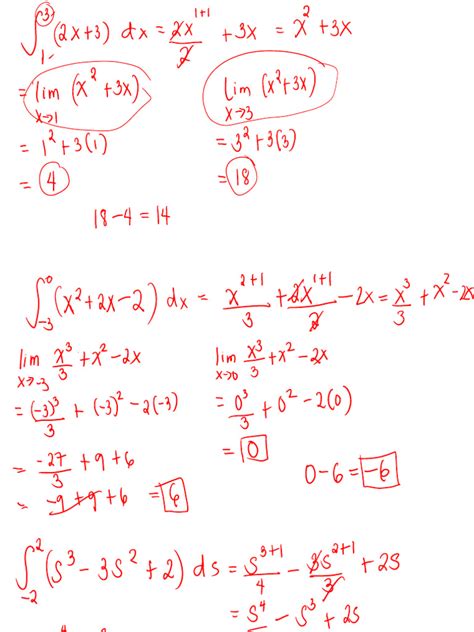 ∫₁³ (2x+3) dx = 2x¹⁺¹/2 + 3x = x² + 3x
= lim x→1 (x² + 3x)    lim x→3 (x²+3x)
= 1² + 3(1)    = 3² + 3(3)
= 4    = 18
18 - 4 = 14
∫₋₃⁰ (x² + 2x - 2) dx = x²⁺¹/3 + 2x¹⁺¹/2 - 2x = x³/3 + x² - 2x
lim x→-3 x³/3 + x² - 2x    lim x→0 x³/3 + x² - 2x
= (-3)³/3 + (-3)² - 2(-3)    = 0³/3 + 0² - 2(0)
= -27/3 + 9 + 6    = 0
= -9 + 9 + 6 = 6    0 - 6 = -6
∫₋₂² (s³ - 3s² + 2) ds = s³⁺¹/4 - 3s²⁺¹/3 + 2s
= s⁴ - s³ + 2s